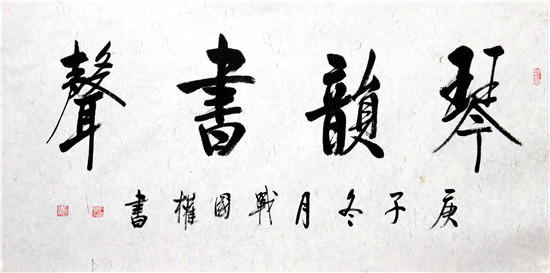 琴韻書聲
庚子冬月戰國權書